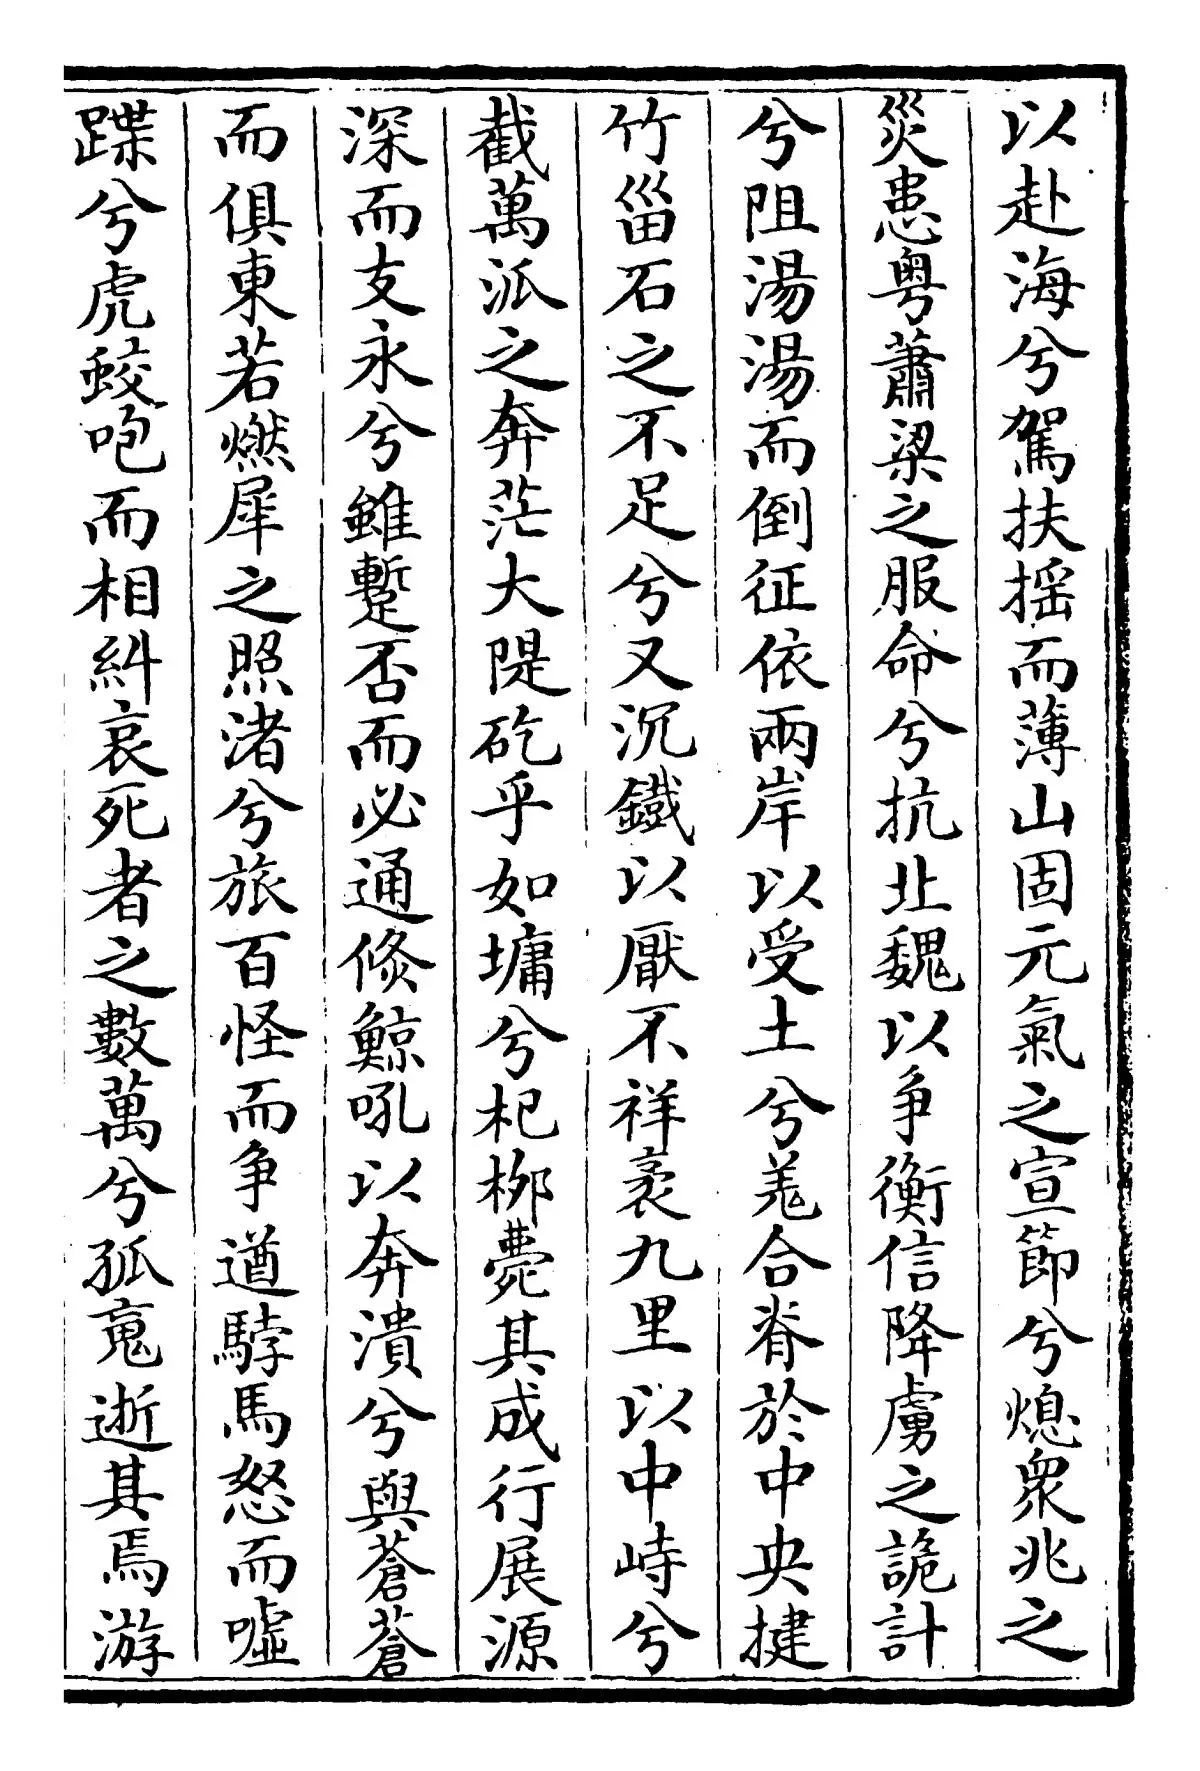 以赴海兮駕扶揺而薄山固元氣之宣節兮熄衆兆之
災患粤蕭梁之服命兮抗北魏以争衡信降虜之詭計
兮阻湯湯而倒征依兩岸以受土兮羗合脊於中央揵
竹葘石之不足兮又沉鐵以厭不祥袤九里以中峙兮
截萬派之奔茫大隄矻乎如墉兮杞栁薨其成行展源
深而支永兮雖蹔否而必通倐鯨吼以奔潰兮與蒼蒼
而俱東若燃犀之照渚兮旅百怪而争遒駭馬怒而嘘
蹀兮虎蛟咆而相糾哀死者之數萬兮孤䰟逝其焉游